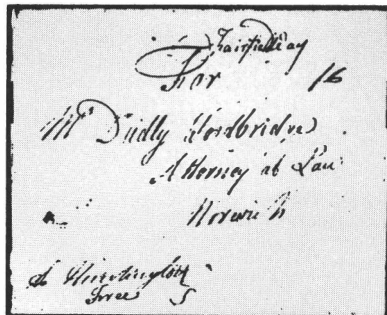 Fairfield
For 16
Mr Dudly Woodbridge
Attorney at Law
Norwich
S Huntington
Free